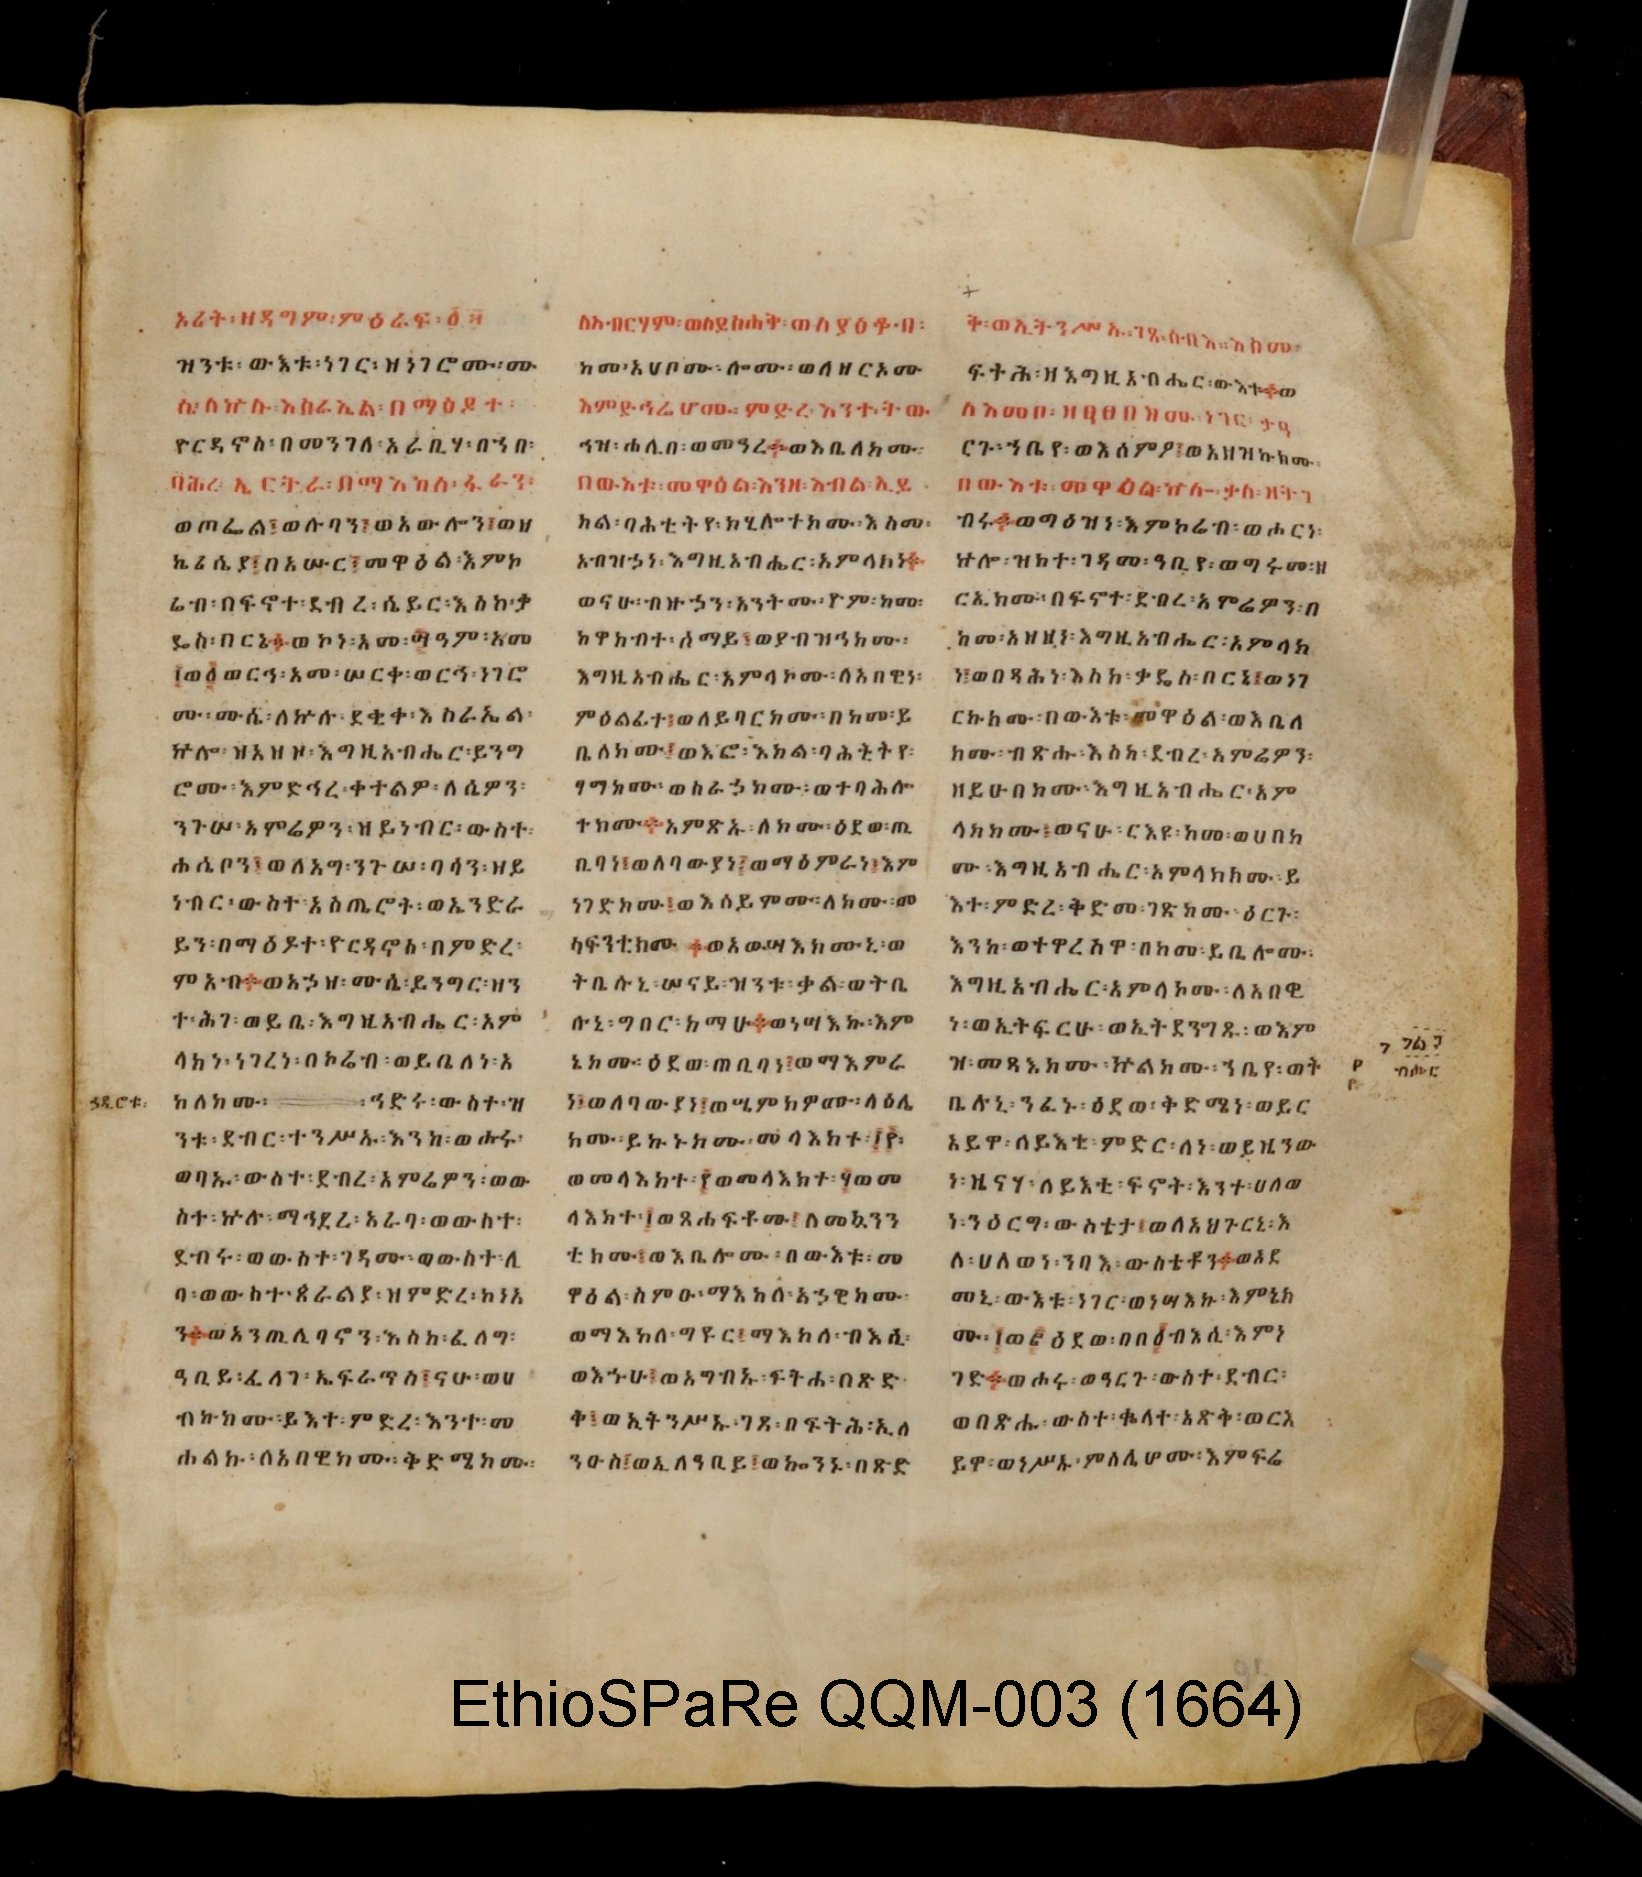 ኦሪት፡ ዘዳግም፡ ምዕራፍ፡
ዝንቱ፡ ውእቱ፡ ነገር፡ ዝነገሮሙ፡ ሙ
ሴ፡ ለኵሉ፡ እስራኤል፡ በማዕዶተ፡
ዮርዳኖስ፡ በመንገለ፡ አራቢሃ፡ በኀበ፡
ባሕረ፡ ኢርትራ፡ በማእከለ፡ ፋራን፡
ወጦፌል፤ወሉባን፤ወአውሎን፤ወዘ
ኬሬሲያ፤በአሡር፤መዋዕል፡ እምኮ
ሬብ፡ በፍኖተ፡ ደብረ፡ ሴይር፡ እስከ፡ ቃ
ዴስ፡ በርኔ፨ወኮነ፡ አመ፡ ፵ዓም፡ አመ
፲ወ፩ወርኅ፡ አመ፡ ሠርቀ፡ ወርኅ፡ ነገሮ
ሙ፡ ሙሴ፡ ለኵሉ፡ ደቂቀ፡ እስራኤል፡
ኵሎ፡ ዝአዝዞ፡ እግዚአብሔር፡ ይንግ
ሮሙ፡ እምድኅረ፡ ቀተልዎ፡ ለሴዎን፡
ንጉሠ፡ አሞሬዎን፡ ዝይነብር፡ ውስተ፡
ሐሴቦን፤ወለአግ፡ ንጉሠ፡ ባሳን፡ ዝይ
ነብር፡ ውስተ፡ አስጢሮት፡ ወኤንድራ
ይን፡ በማዕዶተ፡ ዮርዳኖስ፡ በምድረ፡
ምአብ፨ወአኃዘ፡ ሙሴ፡ ይንግር፡ ዘን
ተ፡ ሕገ፡ ወይቤ፡ እግዚአብሔር፡ አም
ላክነ፡ ነገረነ፡ በኮሬብ፡ ወይቤለነ፡ አ
ከለክሙ፡ ኀዲሮቱ፡ ኀድሩ፡ ውስተ፡ ዝ
ንቱ፡ ደብር፡ ተንሥኡ፡ እንከ፡ ወሑሩ፡
ወባኡ፡ ውስተ፡ ደብረ፡ አምሬዎን፡ ወው
ስተ፡ ኵሉ፡ ማኅደረ፡ አራባ፡ ወውስተ፡
ደብሩ፡ ወውስተ፡ ገዳሙ፡ ወውስተ፡ ሊ
ባ፡ ወውስተ፡ ጰራልያ፡ ዝምድረ፡ ከነአ
ን፨ወአንጢሊባኖን፡ እስከ፡ ፈለግ፡
ዓቢይ፡ ፈለገ፡ ኤፍራጥስ፤ናሁ፡ ወሀ
ብኩክሙ፡ ይእተ፡ ምድረ፡ እንተ፡ መ
ሐልኩ፡ ለአበዊክሙ፡ ቅድሜክሙ፡
ለአብርሃም፡ ወለይስሐቅ፡ ወለያዕቆብ፡
ከመ፡ አሀቦሙ፡ ሎሙ፡ ወለዘርኦሙ
እምድኅሬሆሙ፡ ምድረ፡ እንተ፡ ትው
ኅዝ፡ ሐሊበ፡ ወመዓረ፨ወእቤለክሙ፡
በውእቱ፡ መዋዕል፡ እንዘ፡ እብል፡ ኢይ
ክል፡ ባሕቲትየ፡ ክሂሎተክሙ፡ እስመ፡
አብዝኃነ፡ እግዚአብሔር፡ አምላክነ፨
ወናሁ፡ ብዙኃን፡ አንትሙ፡ ዮም፡ ከመ፡
ከዋክብተ፡ ሰማይ፤ወያብዝኅክሙ፡
እግዚአብሔር፡ አምላኮሙ፡ ለአበዊነ፡
ምዕልፈተ፤ወለይባርክሙ፡ በከመ፡ ይ
ቤለክሙ፤ወእፎ፡ እክል፡ ባሕቲትየ፡
ፃማክሙ፡ ወስራኃክሙ፡ ወተባሕሎ
ተክሙ፨አምጽኡ፡ ለክሙ፡ ዕደወ፡ ጠ
ቢባነ፤ወለባውያነ፤ወማዕምራነ፤እም
ነገድክሙ፤ወእሰይምሙ፡ ለክሙ፡ መ
ላፍንቲክሙ፨ወአውሣእክሙኒ፡ ወ
ትቤሉኒ፡ ሠናይ፡ ዝንቱ፡ ቃል፡ ወትቤ
ሉኒ፡ ግበር፡ ከማሁ፨ወነሣእኩ፡ እም
ኔክሙ፡ ዕደወ፡ ጠቢባነ፤ወማእምራ
ነ፤ወለባውያነ፤ወሢምክዎሙ፡ ላዕሌ
ክሙ፡ ይኩኑክሙ፡ መላእክተ፡ ፲፻፡
ወመላእክተ፡ ፻ወመላእክተ፡ ፶ወመ
ላእክተ፡ ፲ወጸሐፍቶሙ፤ለመኳንን
ቲክሙ፤ወእቤሎሙ፡ በውእቱ፡ መ
ዋዕል፡ ስምዑ፡ ማእከለ፡ አኃዊክሙ፡
ወማእከለ፡ ግዩር፤ማእከለ፡ ብእሲ፡
ወእኁሁ፤ወአግብኡ፡ ፍትሐ፡ በጽድ
ቅ፤ወኢትንሥኡ፡ ገጸ፡ በፍትሕ፡ ኢለ
ንዑስ፤ወኢለዓቢይ፤ወኰንኑ፡ በጽድ
ቅ፡ ወኢትንሥኡ፡ ገጸ፡ ሰብእ፡ እስመ፡
ፍትሕ፡ ዘእግዚአብሔር፡ ውእቱ፨ወ
ለእመቦ፡ ዘዐፀበክሙ፡ ነገር፡ ታዓ
ርጉ፡ ኀቤየ፡ ወእሰምዖ፤ወአዘዝኩክሙ፡
በውእቱ፡ መዋዕል፡ ኵሎ፡ ቃለ፡ ዘትገ
ብሩ፨ወግዕዝነ፡ እምኮሬብ፡ ወሖርነ፡
ኵሎ፡ ዝክተ፡ ገዳመ፡ ዓቢየ፡ ወግሩመ፡ ዘ
ርኢክሙ፡ በፍኖተ፡ ደብረ፡ አሞሬዎን፡ በ
ከመ፡ አዘዘነ፡ እግዚአብሔር፡ አምላክ
ነ፤ወበጻሕነ፡ እስከ፡ ቃዴስ፡ በርኔ፤ወነገ
ርኩክሙ፡ በውእቱ፡ መዋዕል፡ ወእቤለ
ክሙ፡ ብጽሑ፡ እስከ፡ ደብረ፡ አምሬዎን፡
ዘይሁበክሙ፡ እግዚአብሔር፡ አም
ላክክሙ፤ወናሁ፡ ርእዩ፡ ከመ፡ ወሀበክ
ሙ፡ እግዚአብሔር፡ አምላክክሙ፡ ይ
እተ፡ ምድረ፡ ቅድመ፡ ገጽክሙ፡ ዕርጉ፡
እንከ፡ ወተዋረስዋ፡ በከመ፡ ይቤሎሙ፡
እግዚአብሔር፡ አምላኮሙ፡ ለአበዊ
ነ፡ ወኢትፍርሁ፡ ወኢትደንግጹ፡ ወእም
ዝ፡ መጻእክሙ፡ ኵልክሙ፡ ኀቤየ፡ ወት
ቤሉኒ፡ ንፈኑ፡ ዕደወ፡ ቅድሜነ፡ ወይር
አይዋ፡ ለይእቲ፡ ምድር፡ ለነ፡ ወይዜንው
ነ፡ ዜናሃ፡ ለይእቲ፡ ፍኖት፡ እንተ፡ ሀለወ
ነ፡ ንዕርግ፡ ውስቴታ፤ወለአህጉርኒ፡ እ
ለ፡ ሀለወነ፡ ንባእ፡ ውስቴቶን፨ወአደ
መኒ፡ ውእቱ፡ ነገር፡ ወነሣእኩ፡ እምኔክ
ሙ፡ ፲ወ፪ዕደወ፡ በበ፩ብእሲ፡ እምነ
ገድ፨ወሖሩ፡ ወዓርጉ፡ ውስተ፡ ደብር፡
ወበጽሑ፡ ውስተ፡ ቈላተ፡ አጽቅ፡ ወርእ
ይዋ፡ ወነሥኡ፡ ምስሌሆሙ፡ እምፍሬ
EthioSPaRe QQM-003 (1664)